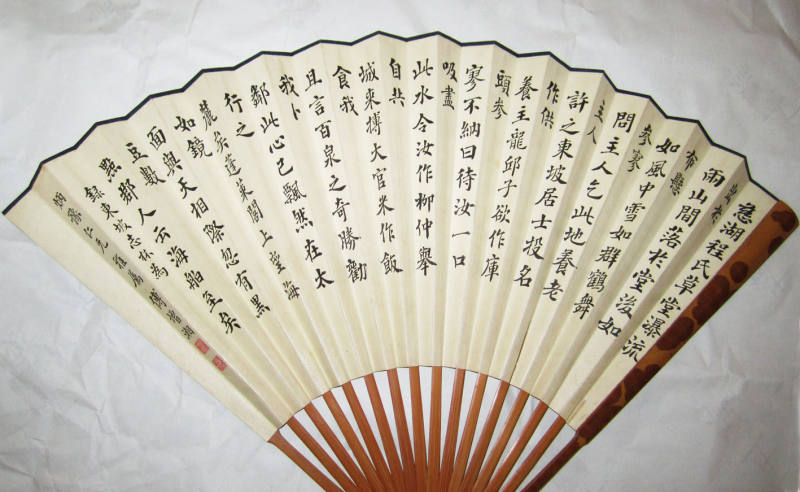 慈湖程氏草堂瀑流
兩山間落於堂後如
布懸
如風中雪如群鶴舞
參寥
問主人乞此地養老
主人
許之東坡居士投名
作供
養主龍邱子欲作庫
頭參
寥不納曰待汝一口
吸盡
此水令汝作柳仲舉
自共
城來摶大官米作飯
食我
且言百泉之奇勝勸
我卜
鄰此心已飄然在太
行之
麓矣蓬萊閣上望海
如鏡
面與天相際忽有黑
豆數
點郡人云海船至矣
錄東坡志林為
仁兄雅屬 傅增湘